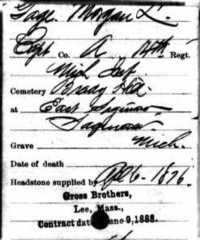 Gage, Morgan L.
Capt Co. A 29th Regt.
Mich Inf
Cemetery Brady Hill
at East Saginaw
Saginaw
Grave Mich.
Date of death
Headstone supplied by
Gross Brothers,
Lee, Mass.,
Contract dated June 9, 1888.